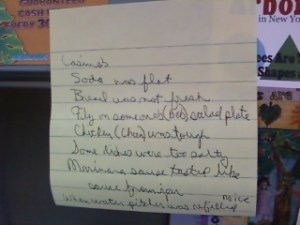 GUARANTEED
CASH
30
in New York
Are
Shaped
Casino's
Soda was flat
Bread was not fresh
Fly on someone's (Bob) salad plate
Chicken (Ches) was tough
Some dishes were too salty
Marinara sauce tasted like
sauce from jar
no ice
When water pitcher was refilled